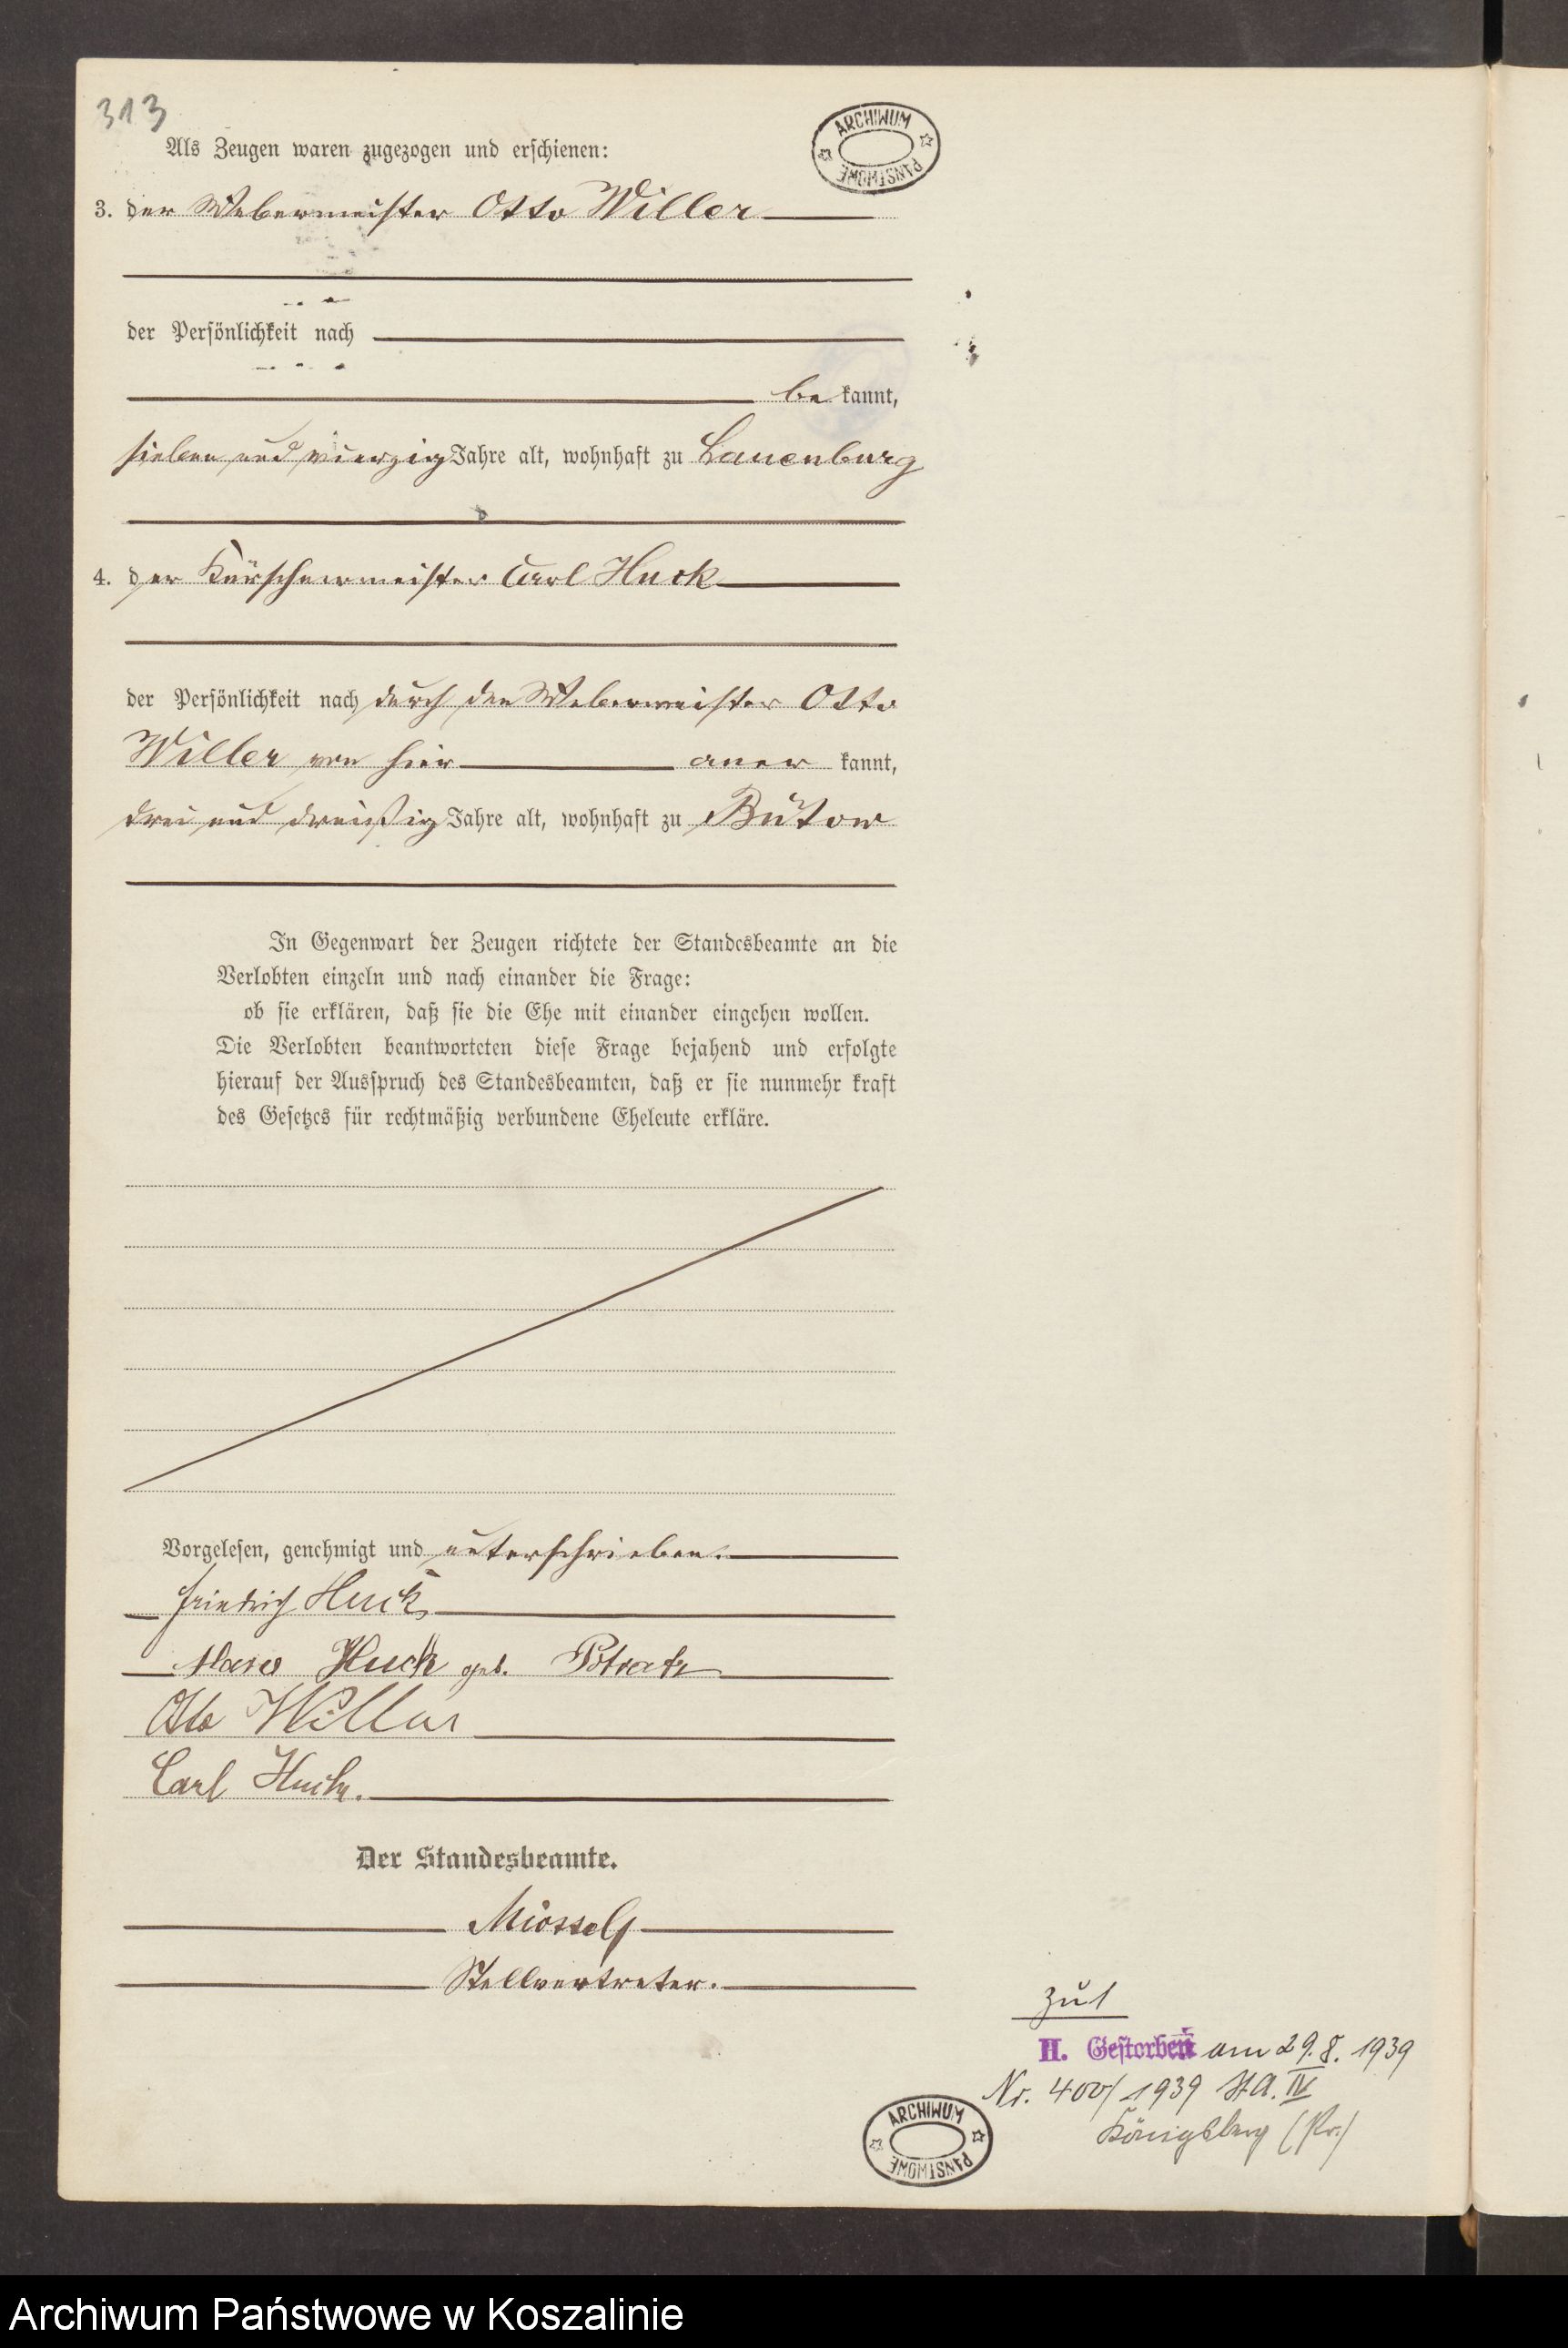 313
ARCHIWUM PAŃSTWOWE
Als Zeugen waren zugezogen und erschienen:
3. der Webermeister Otto Willer
der Persönlichkeit nach
be kannt,
sieben und vierzig Jahre alt, wohnhaft zu Lauenburg
4. der Kürschnermeister Carl Huck
der Persönlichkeit nach durch den Webermeister Otto
Willer von hier aner kannt,
drei und dreißig Jahre alt, wohnhaft zu Bütow
In Gegenwart der Zeugen richtete der Standesbeamte an die
Verlobten einzeln und nach einander die Frage:
ob sie erklären, daß sie die Ehe mit einander eingehen wollen.
Die Verlobten beantworteten diese Frage bejahend und erfolgte
hierauf der Ausspruch des Standesbeamten, daß er sie nunmehr kraft
des Gesetzes für rechtmäßig verbundene Eheleute erkläre.
Vorgelesen, genehmigt und unterschrieben.
Friedrich Huck
Huck geb. Potratz
Otto Willer
Carl Huck.
Der Standesbeamte.
Stellvertreter.
zu 1
H. Gestorben am 29.8.1939
Nr. 400/1939 StA. IV
Königsberg (Pr.)
ARCHIWUM PAŃSTWOWE
Archiwum Państwowe w Koszalinie